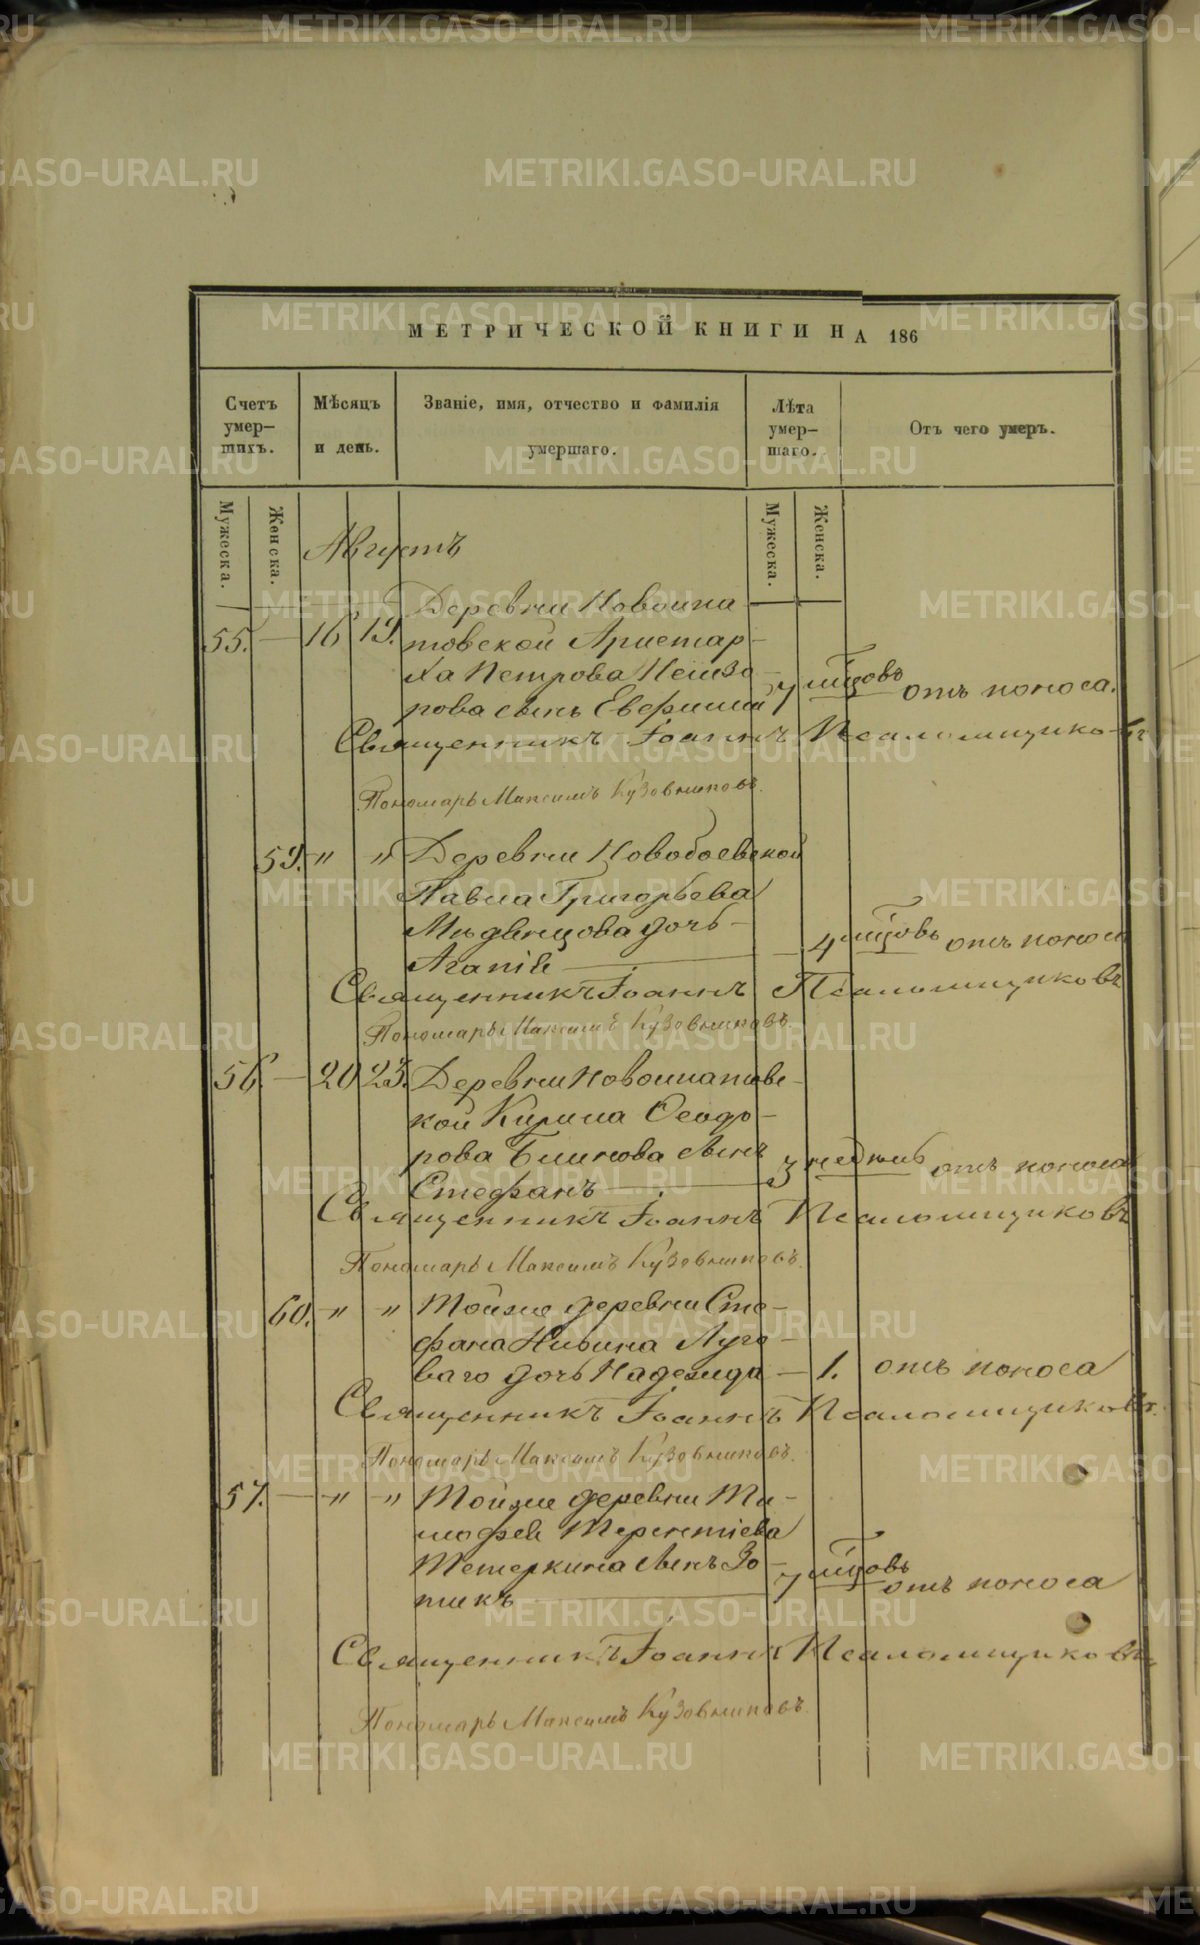 МЕТРИЧЕСКОЙ КНИГИ НА 186
Счетъ умер-шихъ.
Мѣсяцъ и день.
Званіе, имя, отчество и фамилія умершаго.
Лѣта умер-шаго.
Отъ чего умеръ.
Мужеска. Женска. Мужеска. Женска.
Августъ
Деревни Новоипа
55. — 16 19. товской Аристар-
ха Петрова
рова сынъ 7 мцовъ отъ поноса.
Священникъ Іоаннъ Псаломщиковъ
Пономарь Максимъ Кузовниковъ.
59. " " Деревни Новобоевской
Павла Григорьева
Медвѣцова дочь —
Агапія — 4 мцовъ отъ поноса
Священникъ Іоаннъ Псаломщиковъ
Пономарь Максимъ Кузовниковъ.
56. — 20 23. Деревни Новоипатовс-
кой Кирила Ѳеодо-
рова Блинова сынъ
Стефанъ — 3 недѣль отъ поноса
Священникъ Іоаннъ Псаломщиковъ
Пономарь Максимъ Кузовниковъ.
60. " " Тойже деревни Сте-
фана Луго-
ваго дочь Надежда — 1. отъ поноса
Священникъ Іоаннъ Псаломщиковъ.
Пономарь Максимъ Кузовниковъ.
57. — " " Тойже деревни Ти-
мофея Терентіева
Тетеркина сынъ Зо-
тикъ — 7 мцовъ отъ поноса
Священникъ Іоаннъ Псаломщиковъ
Пономарь Максимъ Кузовниковъ.
METRIKI.GASO-URAL.RU